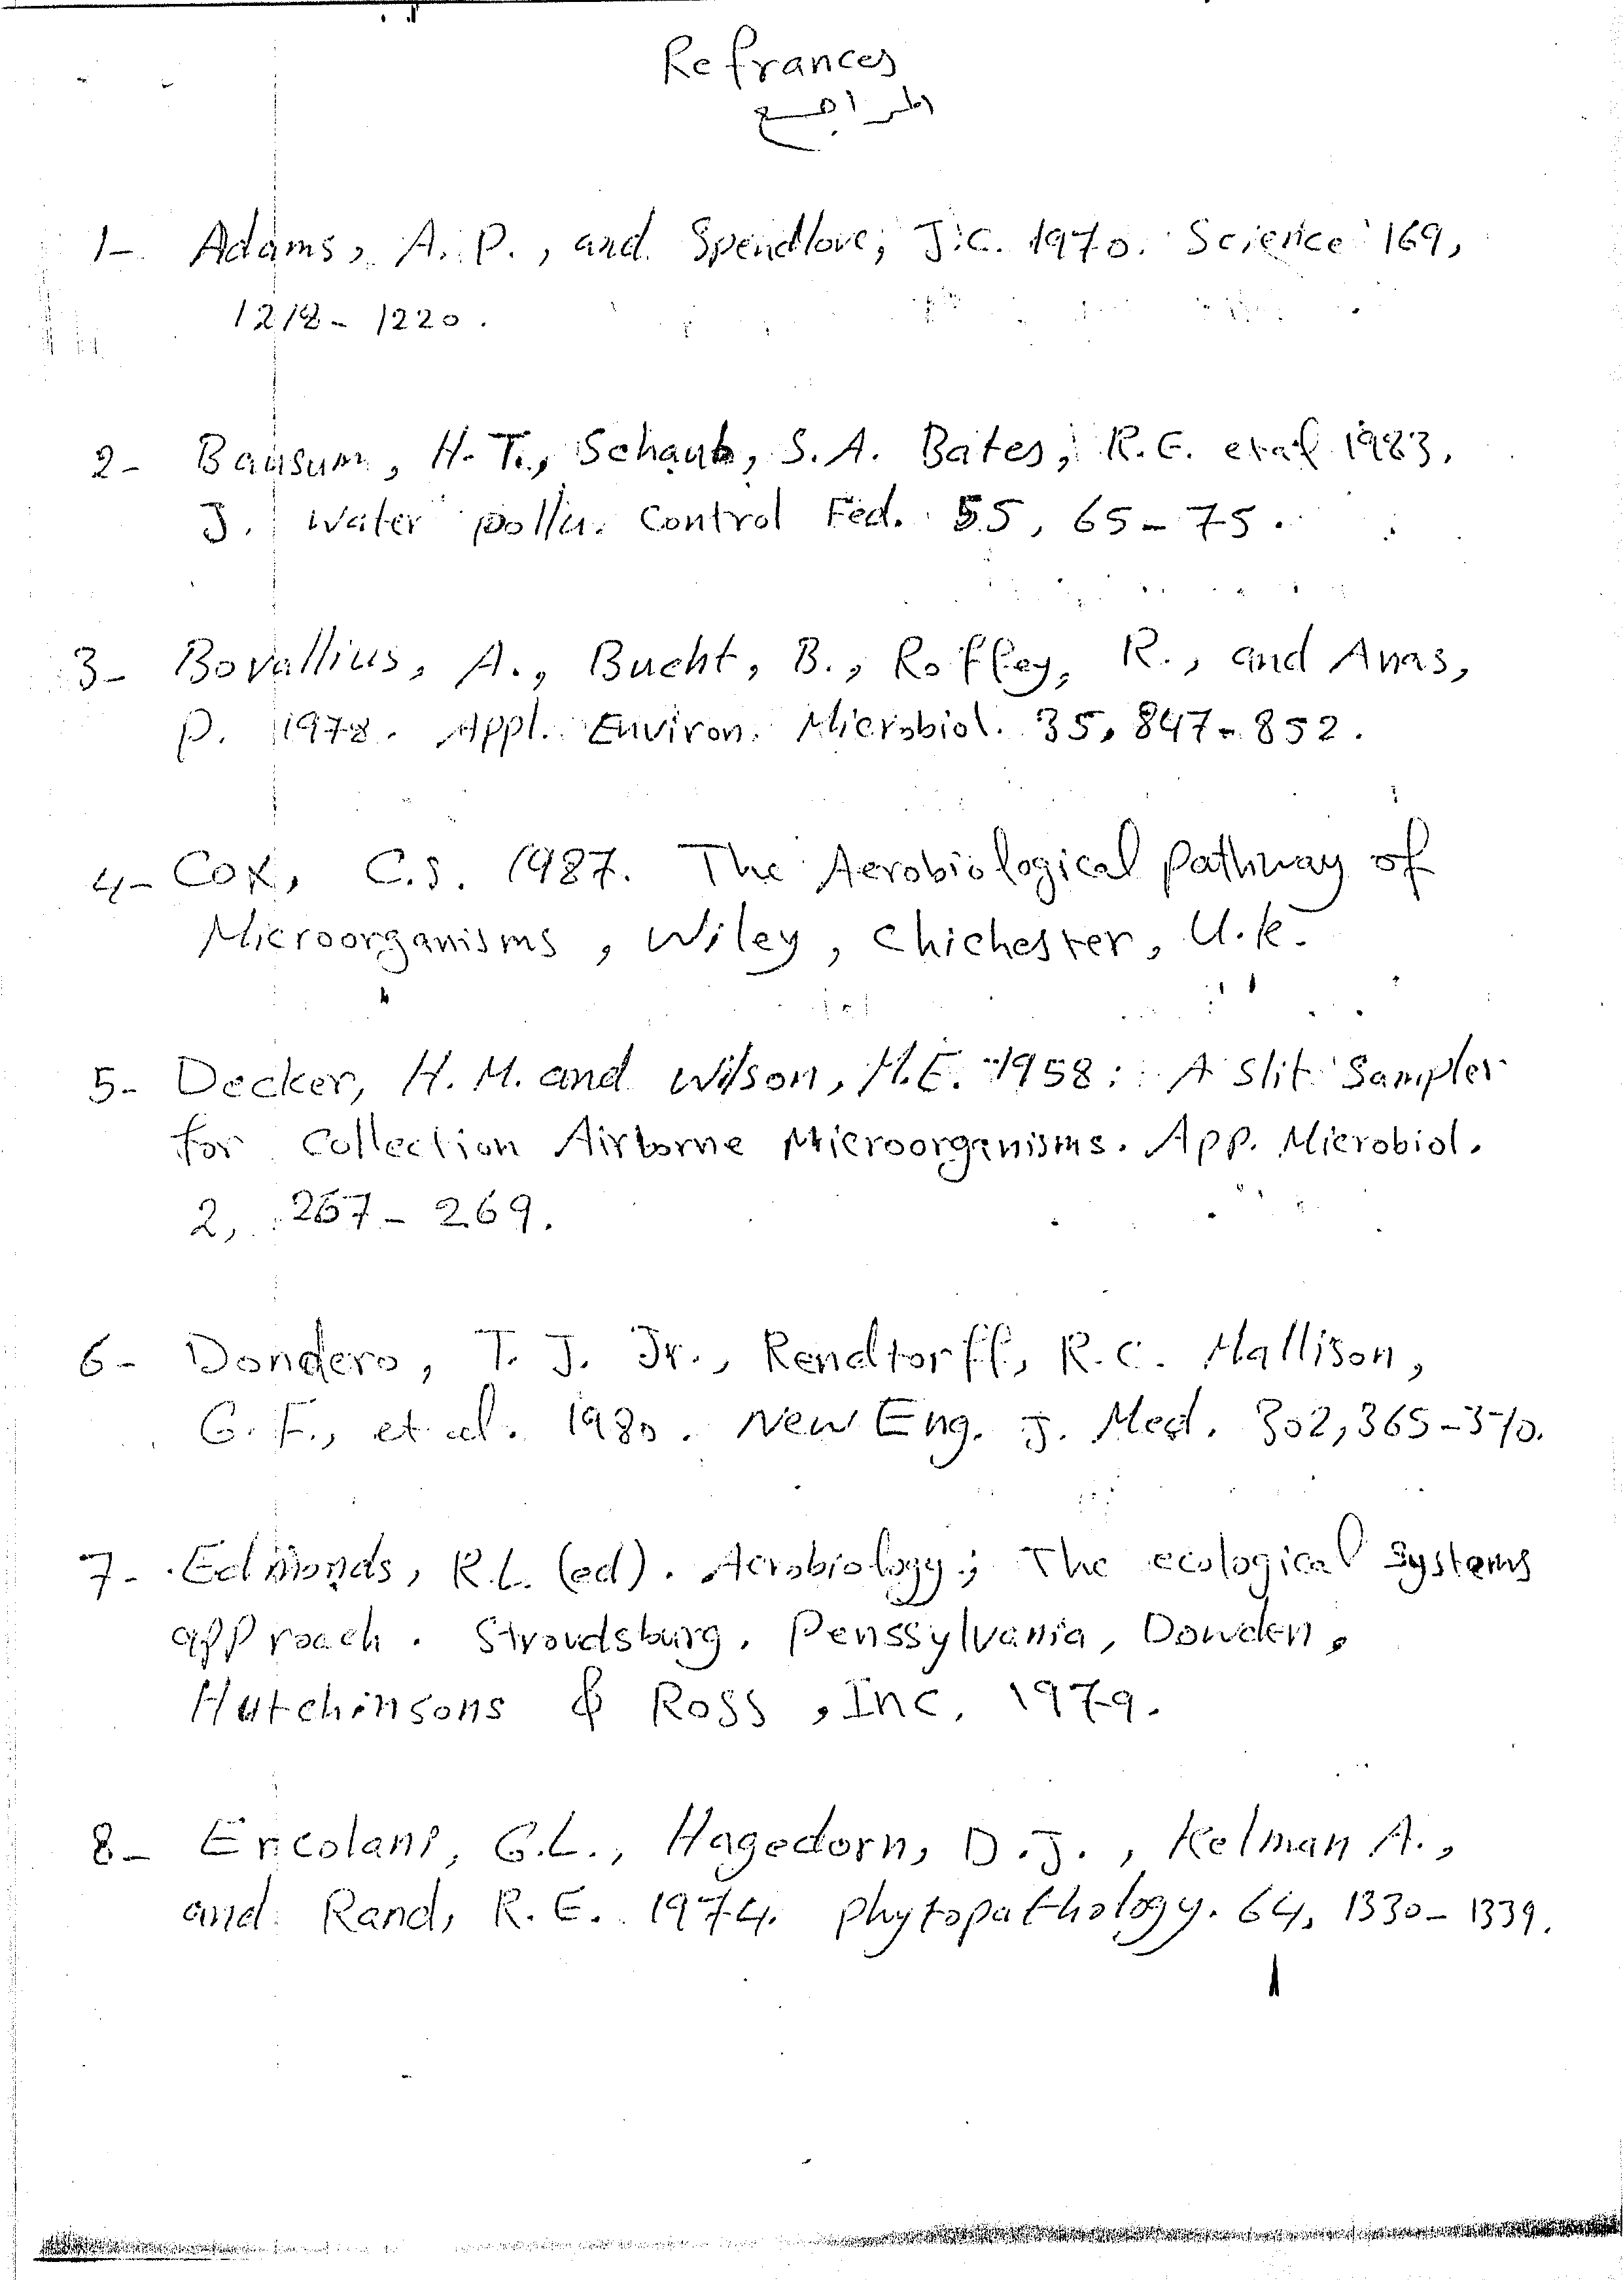 Refrances
المراجع
1- Adams, A. P., and Spendlove, J.C. 1970. Science 169,
1218 - 1220.
2- Bausum, H. T., Schaub, S. A. Bates, R. E. et al 1983.
J. Water pollu. Control Fed. 55, 65 - 75.
3- Bovallius, A., Bucht, B., Roffey, R., and Anas,
P. 1978. Appl. Environ. Microbiol. 35, 847 - 852.
4- Cox, C.S. 1987. The Aerobiological Pathway of
Microorganisms, Wiley, Chichester, U.K.
5- Decker, H. M. and Wilson, M.E. 1958: A Slit Sampler
for Collection Airborne Microorganisms. App. Microbiol.
2, 267 - 269.
6- Dondero, T. J. Jr., Rendtorff, R.C. Mallison,
G. F., et al. 1980. New Eng. J. Med. 302, 365 - 370.
7- Edmonds, R.L. (ed). Aerobiology; The ecological Systems
approach. Stroudsburg. Penssylvania, Dowden,
Hutchinsons & Ross, Inc. 1979.
8- Ercolani, G.L., Hagedorn, D.J., Kelman A.,
and Rand, R.E. 1974. Phytopathology. 64, 1330 - 1339.